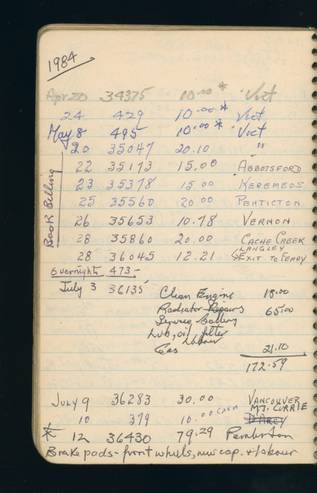 1984
Apr 20 34375 10.00* Vict
24 429 10.00* Vict
May 8 495 10.00* Vict
20 35047 20.10 "
22 35173 15.00 ABBOTSFORD
23 35378 15.00 KEREMEOS
25 35560 20.00 PENTICTON
26 35653 10.78 VERNON
28 35860 20.00 CACHE CREEK
28 36045 12.21 LANGLEY EXIT TO FERRY
Book Billing
overnights 473-
July 3 36135 Clean Engine 18.00
Radiator Repairs 65.00
Battery
Lub, oil, filter
Labour
Gas 21.10
172.59
JULY 9 36283 30.00 VANCOUVER
MT. CURRIE
10 379 10.00 CASH D'ARCY
* 12 36430 79.29 Pemberton
Brake pads - front wheels, new cap. + labour